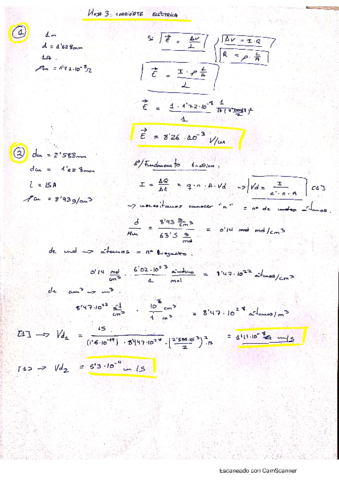 Hoja 3. CORRIENTE ELÉCTRICA
①
1m
d = 1'628mm
1A.
ρcu = 1'72·10⁻⁸
E = ΔV / L
ΔV = I·R
R = ρ· L/A
E = I·ρ· L/A / L
E = 1·1'72·10⁻⁸
E = 8'26·10⁻³ V/m
②
2'588mm
1'628mm
I = 15A
ρcu = 8'93 g/cm³
I = ΔQ/Δt = q·n·A·Vd → Vd = I [1]
→ necesitamos conocer "n" = nº de átomos.
8'93 g/cm³ / 63'5 g/mol = 0'14 mol/cm³
de mol → átomos = nº Avogadro.
0'14 mol/cm³ · 6'02·10²³ átomos / 1 mol = 8'47·10²² átomos/cm³
de cm³ → m³
8'47·10²² at/cm³ · 10⁶ cm³ / 1 m³ = 8'47·10²⁸ átomos/m³
[1] → Vd₁ = 15 / (1'6·10⁻¹⁹)·8'47·10²⁸
→ Vd₂ = 5'3·10⁻⁴ m/s
Escaneado con CamScanner